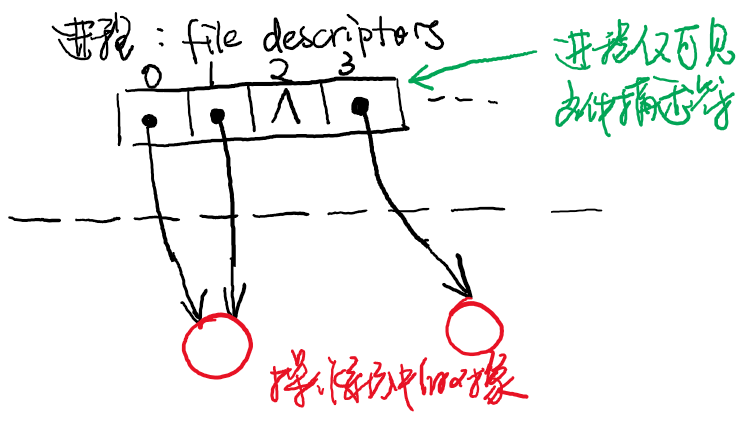 进程：file descriptors
0 1 2 3
进程仅可见
文件描述符
操作系统中的对象